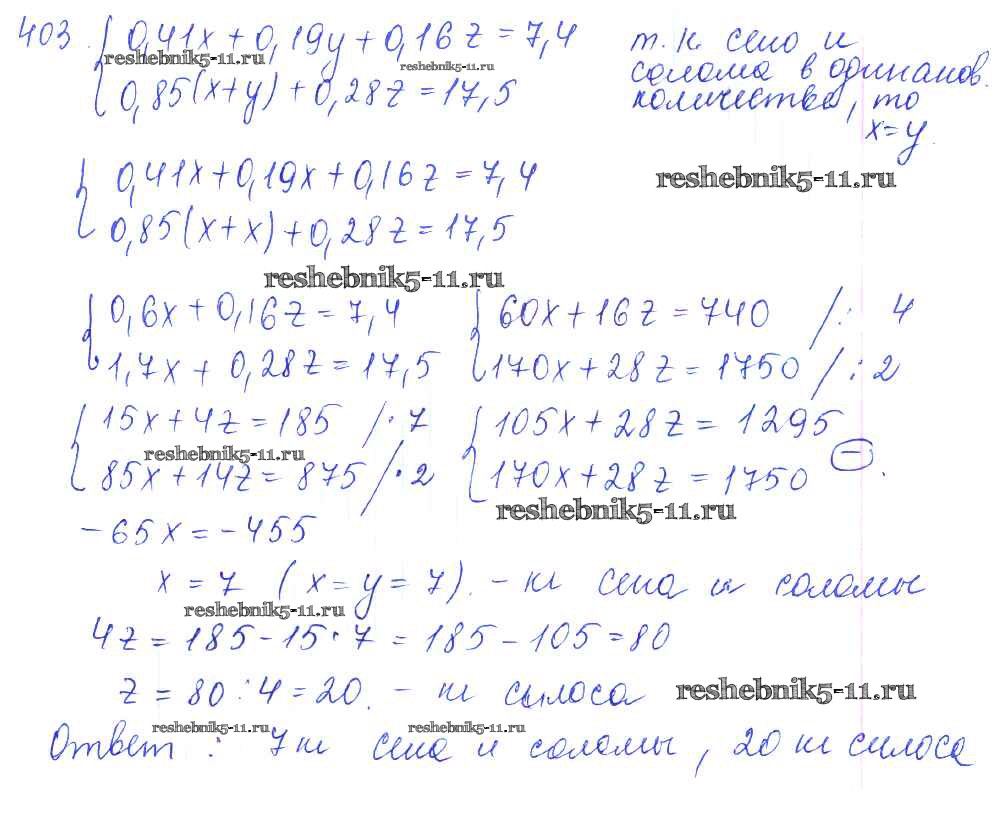 403 0,41x + 0,19y + 0,16z = 7,4 т.к. сено и
reshebnik5-11.ru reshebnik5-11.ru
0,85(x+y) + 0,28z = 17,5 солома в одинаков.
количества, то
x=y.
0,41x+0,19x+0,16z=7,4
reshebnik5-11.ru
0,85(x+x)+0,28z=17,5
reshebnik5-11.ru
0,6x+0,16z=7,4 60x+16z=740 /: 4
1,7x+0,28z=17,5 170x+28z=1750 /: 2
15x+4z=185 /·7 105x+28z=1295
reshebnik5-11.ru
85x+14z=875 /·2 170x+28z=1750 (−).
reshebnik5-11.ru
-65x=-455
x=7 (x=y=7). - кг сена и соломы
reshebnik5-11.ru
4z=185-15·7=185-105=80
z=80:4=20. - кг силоса reshebnik5-11.ru
reshebnik5-11.ru reshebnik5-11.ru
Ответ: 7кг сена и соломы, 20 кг силоса